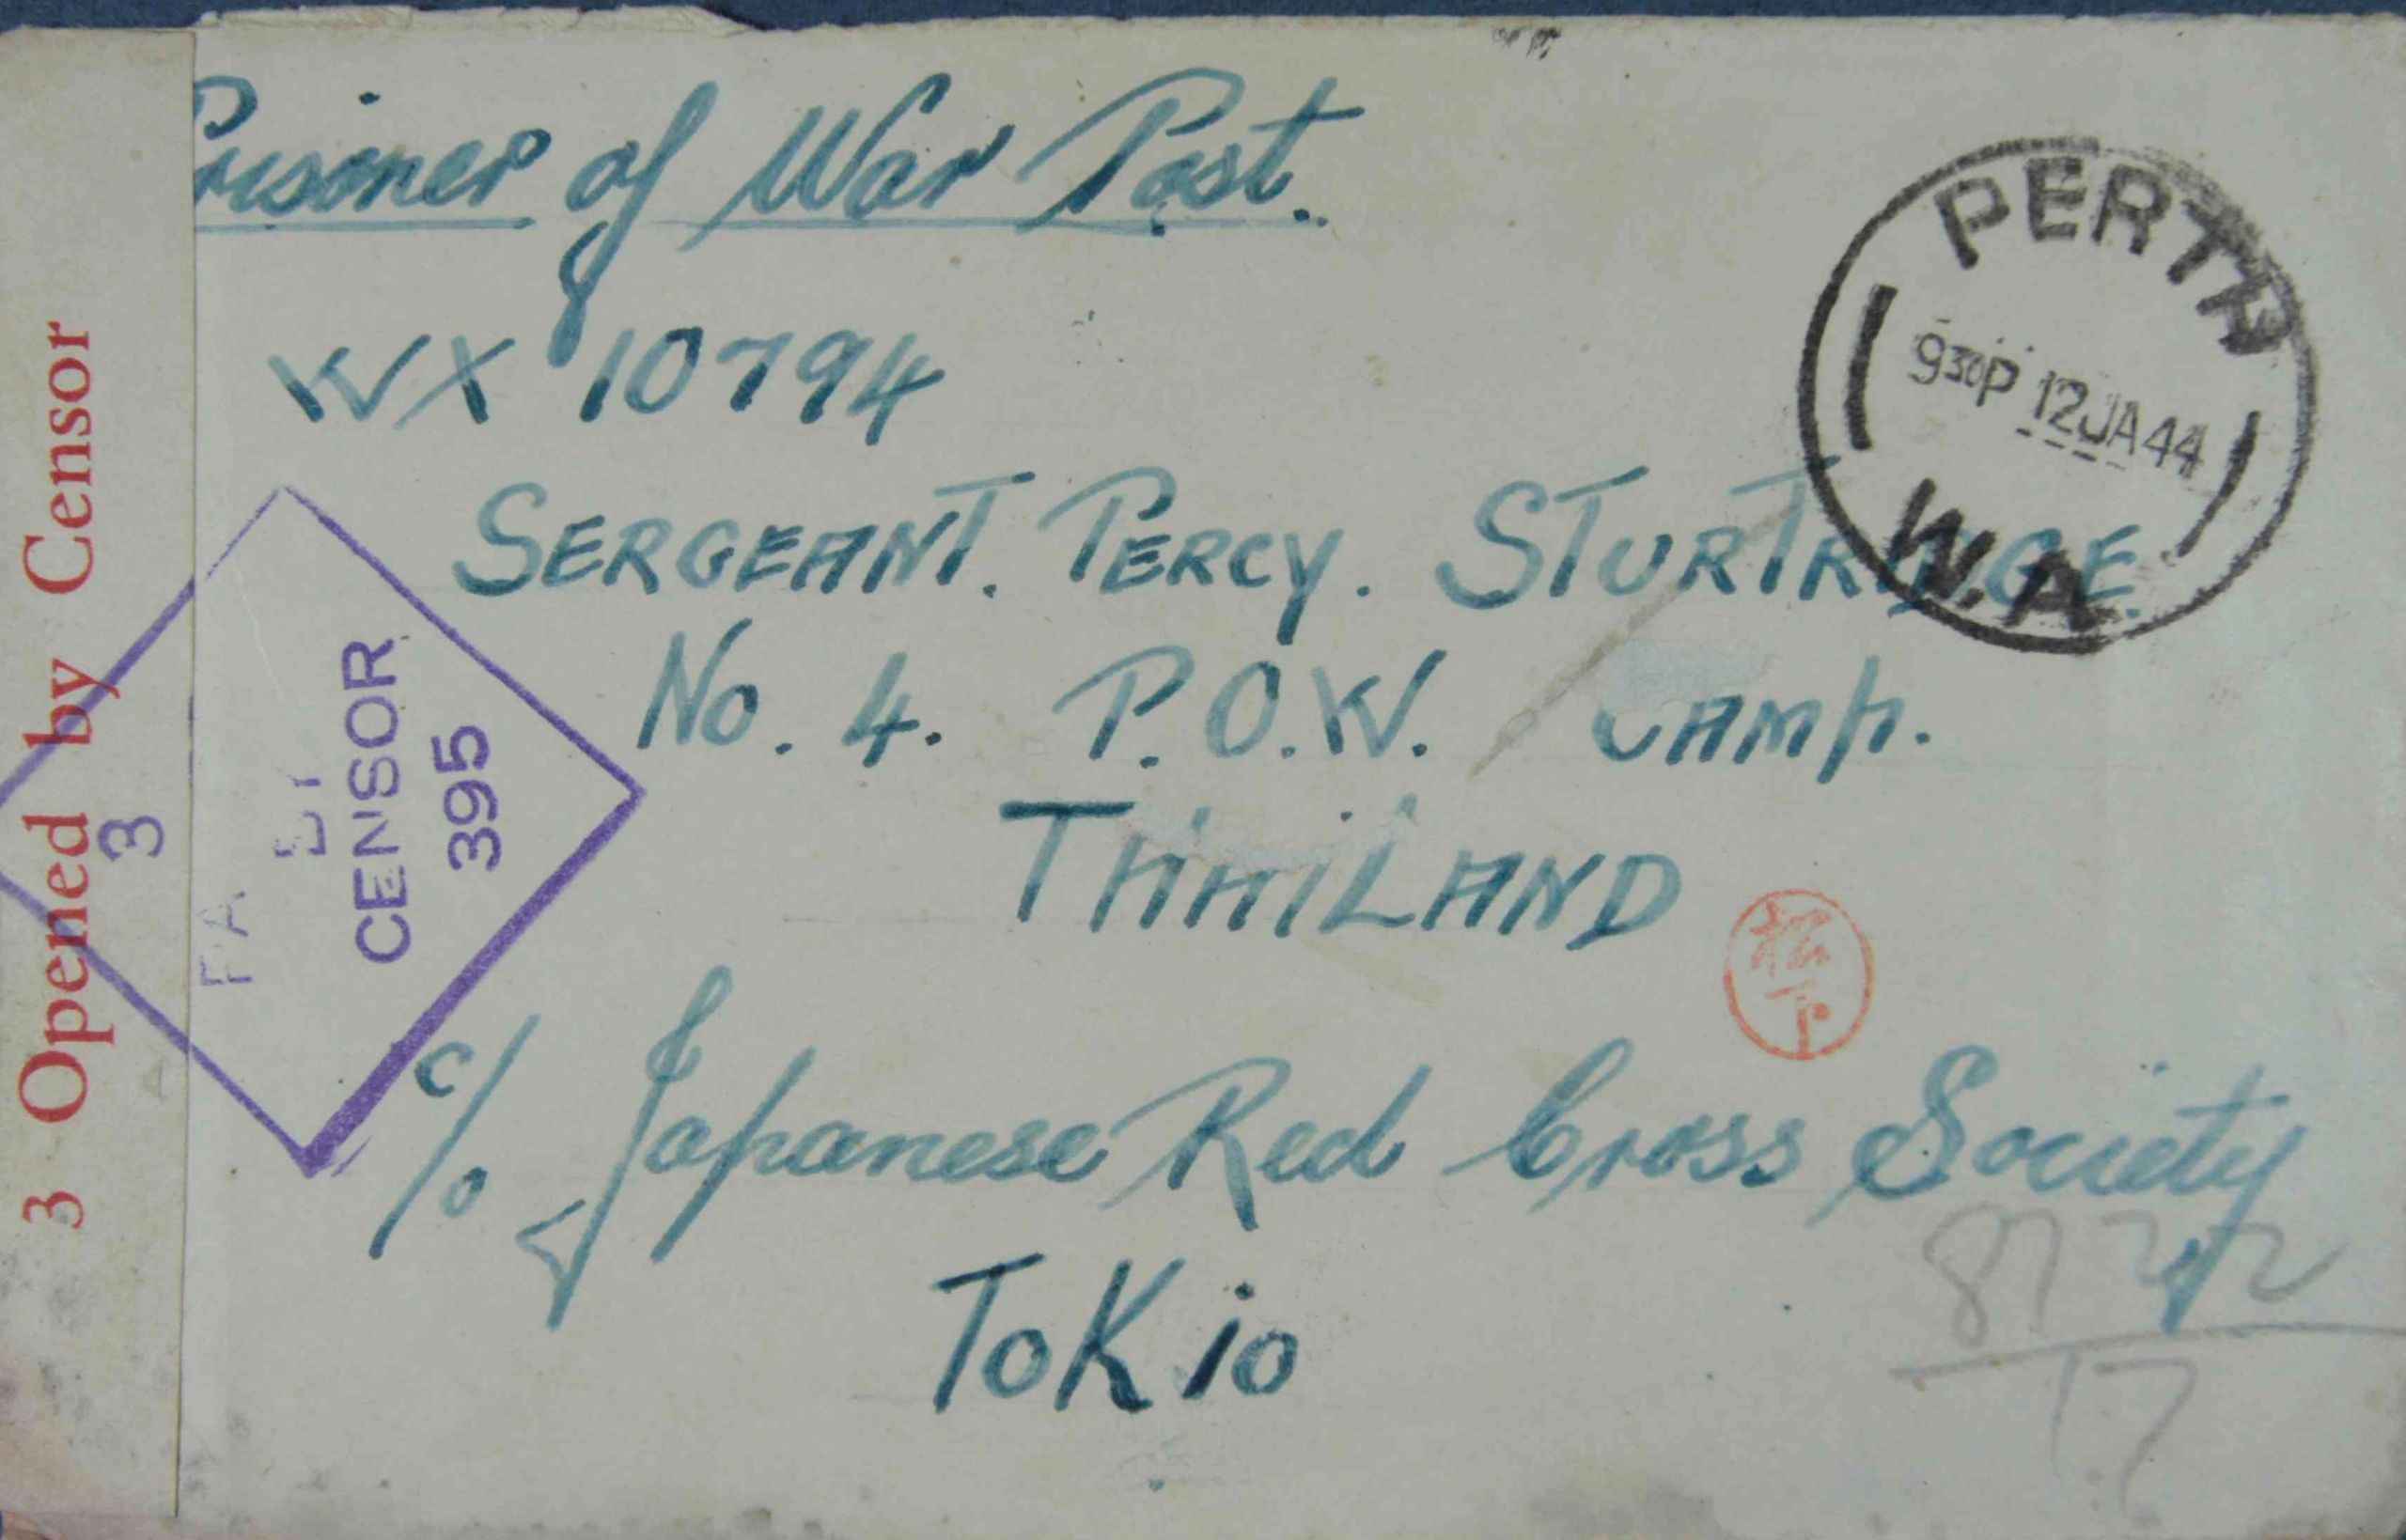 Prisoner of War Post.
WX 10794
SERGEANT. PERCY. STURTRIDGE.
No. 4. P.O.W. CAMP.
THAILAND
c/o Japanese Red Cross Society
ToKio
PERTH
930P 12JA44
W.A.
3 Opened by Censor
3
BY
CENSOR
395
松下
8722
17